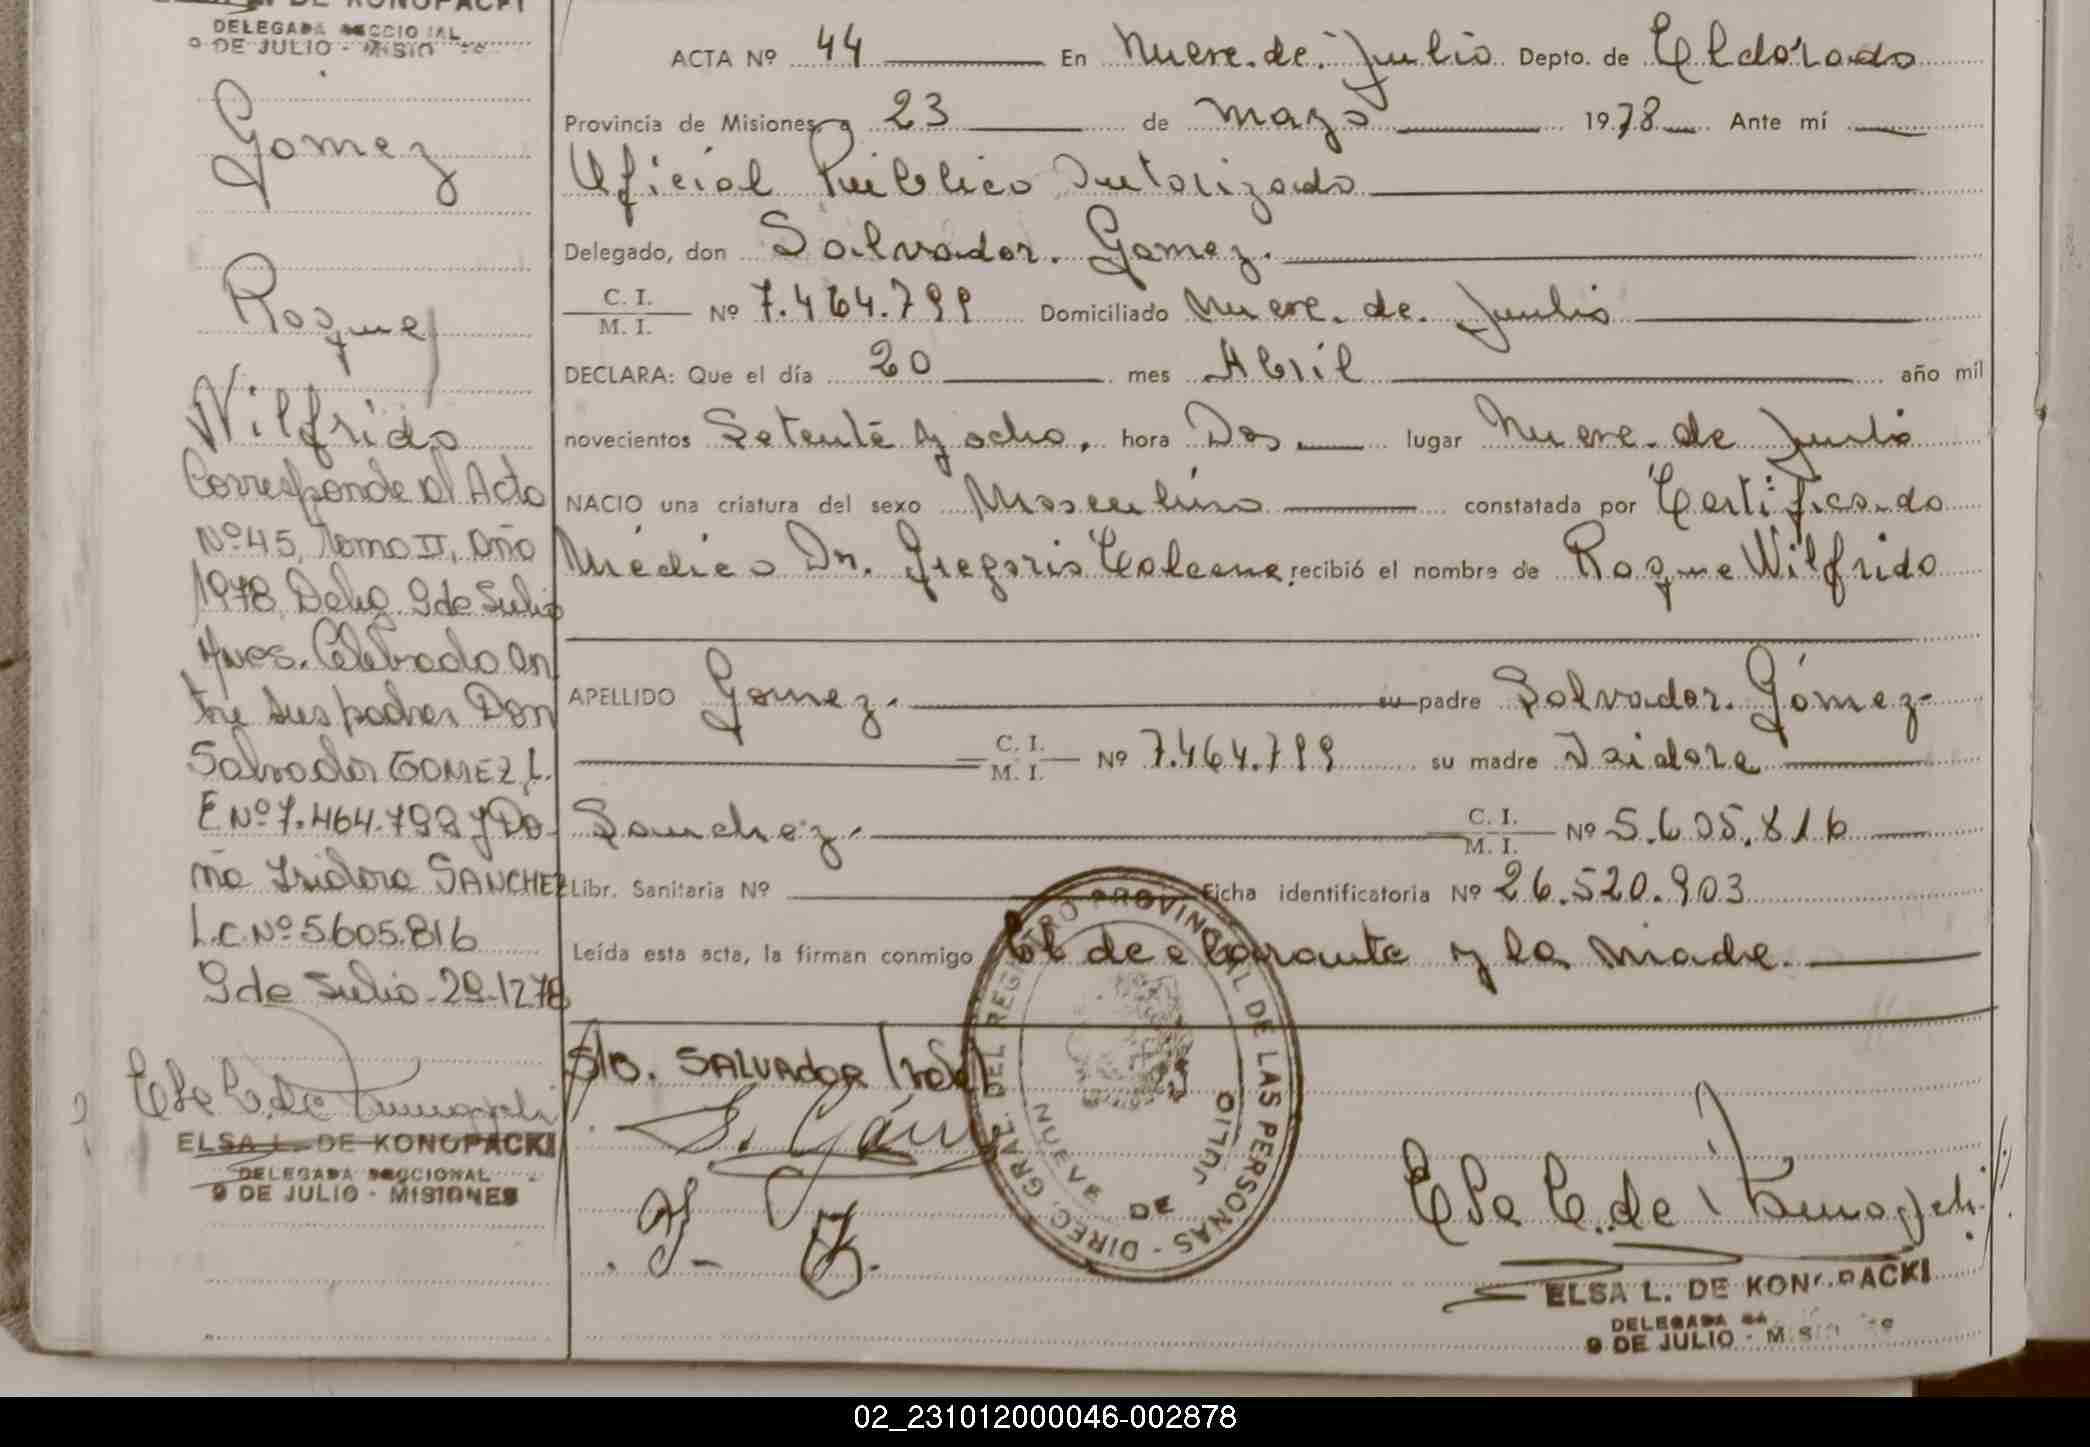 DE KONOPACKI
DELEGADA SECCIONAL
9 DE JULIO - MISIONES
Gomez
Roque
Wilfrido
Corresponde al Acta
Nº 45, Tomo II, año
1978, Deleg. 9 de Julio
Mnes. Celebrado en
tre sus padres Don
Salvador GOMEZ L.
E Nº 7.464.799 y Do
ña Isidora SANCHEZ
L.C. Nº 5605.816
9 de Julio - 29-12-78
ELSA L. DE KONOPACKI
DELEGADA SECCIONAL
9 DE JULIO - MISIONES
ACTA Nº 44 En Nueve de Julio Depto. de Eldorado
Provincia de Misiones, a 23 de Mayo 1978 Ante mí
Oficial Público Autorizado
Delegado, don Salvador Gomez.
C. I.
M. I. Nº 7.464.799 Domiciliado Nueve de Julio
DECLARA: Que el día 20 mes Abril año mil
novecientos Setenta y ocho, hora Dos lugar Nueve de Julio
NACIO una criatura del sexo Masculino constatada por Certificado
Médico Dr. Gregorio recibió el nombre de Roque Wilfrido
APELLIDO Gomez. su padre Salvador Gómez
C. I.
M. I. Nº 7.464.799 su madre Isidora
Sanchez. C. I.
M. I. Nº 5.605.816
Libr. Sanitaria Nº Ficha identificatoria Nº 26.520.903
Leída esta acta, la firman conmigo El declarante y la Madre.
S/B. SALVADOR
DIREC. GRAL. DEL REGISTRO PROVINCIAL DE LAS PERSONAS
NUEVE DE JULIO
ELSA L. DE KONOPACKI
DELEGADA
9 DE JULIO - MISIONES
02_231012000046-002878